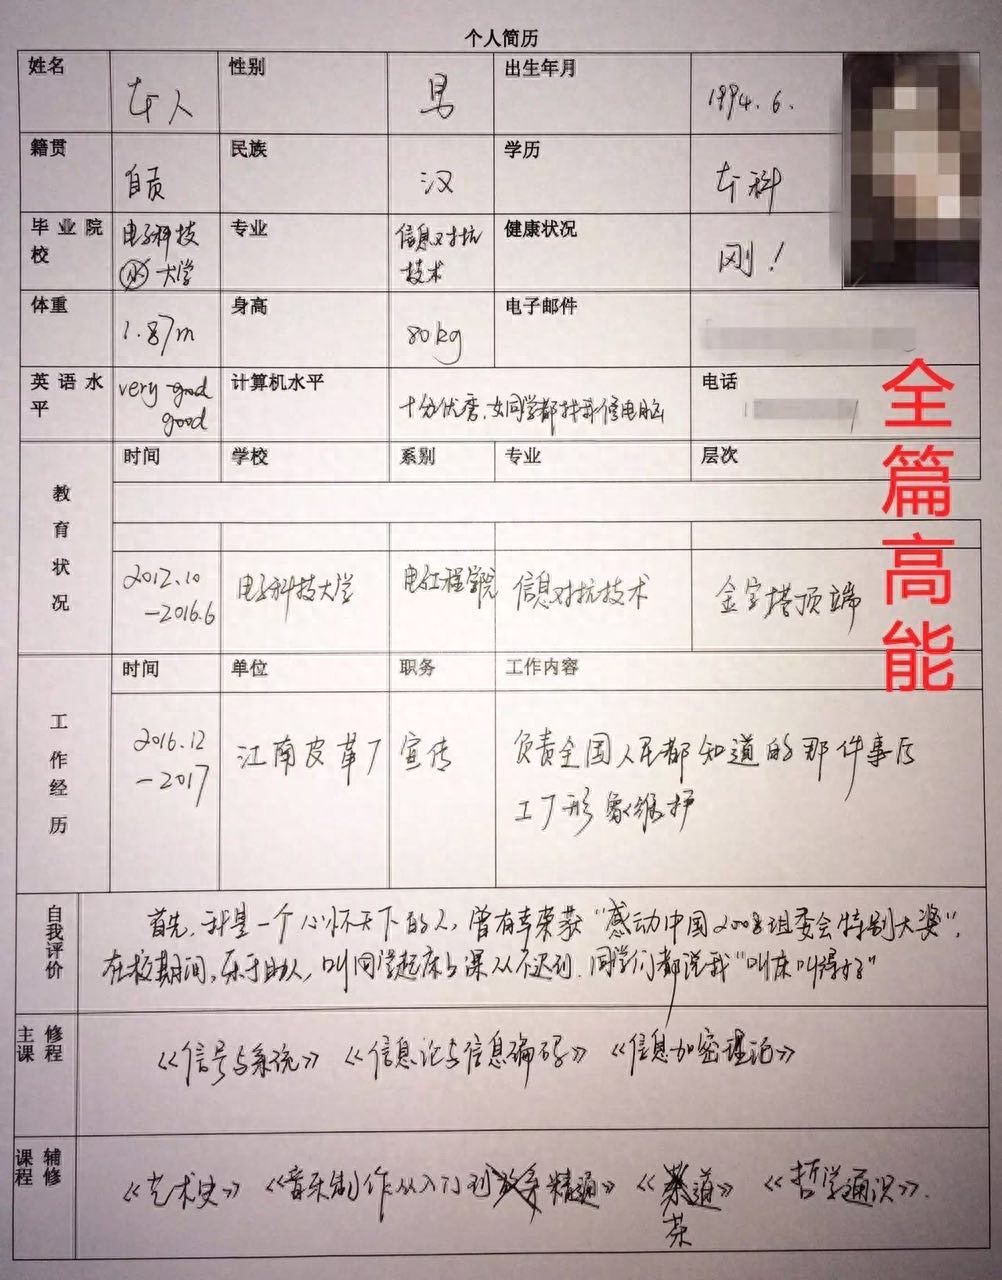 个人简历
姓名 本人 性别 男 出生年月 1994.6.
籍贯 自贡 民族 汉 学历 本科
毕业院校 电子科技大学 专业 信息对抗技术 健康状况 刚！
体重 1.87m 身高 80kg 电子邮件
英语水平 very good good 计算机水平 十分优秀，女同学都找我修电脑 电话
全篇高能
教育状况
时间 学校 系别 专业 层次
2012.10-2016.6 电子科技大学 电子工程学院 信息对抗技术 金字塔顶端
工作经历
时间 单位 职务 工作内容
2016.12-2017 江南皮革厂 宣传 负责全国人民都知道的那件事后
工厂形象维护
自我评价
首先，我是一个心怀天下的人，曾有幸荣获“感动中国2008组委会特别大奖”，
在校期间，乐于助人，叫同学起床上课从不迟到.同学们都说我“叫床叫得好”
主修课程
《信号与系统》 《信息论与信息编码》 《信息加密理论》
辅修课程
《艺术史》 《音乐制作从入门到精通》 《茶道》 《哲学通识》.